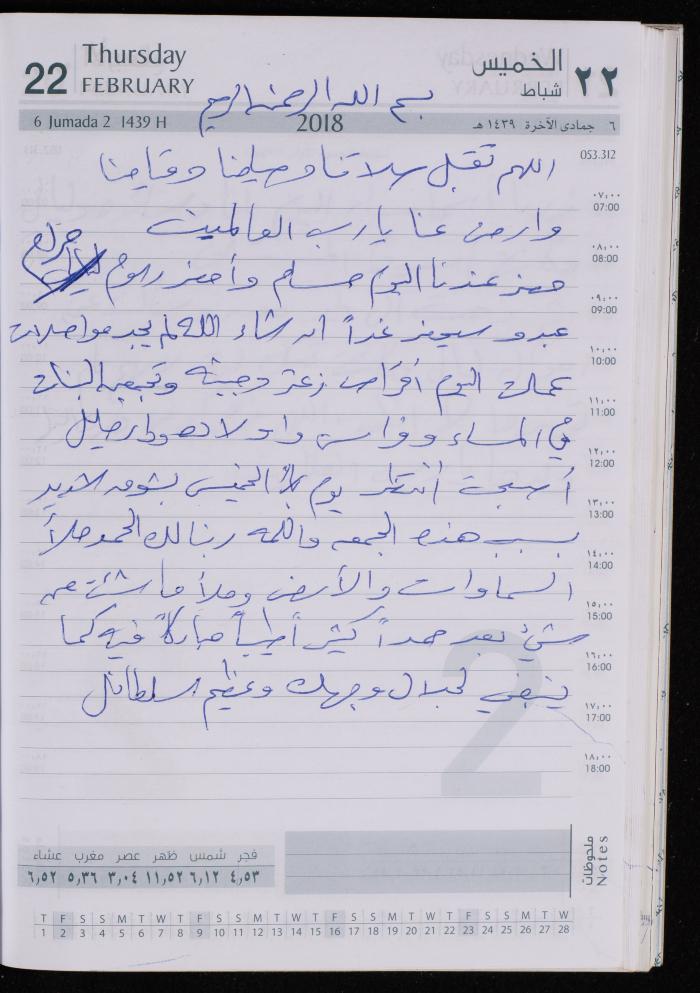 22
Thursday
FEBRUARY
الخميس
شباط
٢٢
بسم الله الرحمن الرحيم
6 Jumada 2 1439 H
2018
٦ جمادى الآخرة ١٤٣٩ هـ
053.312
اللهم تقبل صلاتنا وصيامنا وقيامنا
٠٧,٠٠
07:00
وارض عنا يا رب العالمين
٠٨,٠٠
08:00
حضر عندنا اليوم حسام وأحضر
٠٩,٠٠
09:00
عبدو سيحضر غداً ان شاء الله لم يجد مواصلات
١٠,٠٠
10:00
عملت اليوم أقراص زعتر وجبنه البنات
١١,٠٠
11:00
في المساء وفراس واولاده
١٢,٠٠
12:00
أصبحت أنتظر يوم الخميس
١٣,٠٠
13:00
بسبب هذه الجمعه واللمه ربنا لك الحمد ملأ
١٤,٠٠
14:00
السماوات والأرض وملأ ما شئت من
١٥,٠٠
15:00
شيء بعد حمداً كثير أطيباً مباركاً فيه كما
١٦,٠٠
16:00
ينبغي لجلال وجهك وعظيم سلطانك
١٧,٠٠
17:00
2
١٨,٠٠
18:00
ملحوظات
Notes
فجر شمس ظهر عصر مغرب عشاء
٤,٥٣ ٦,١٢ ١١,٥٢ ٣,٠٤ ٥,٣٦ ٦,٥٢
T F S S M T W T F S S M T W T F S S M T W T F S S M T W
1 2 3 4 5 6 7 8 9 10 11 12 13 14 15 16 17 18 19 20 21 22 23 24 25 26 27 28